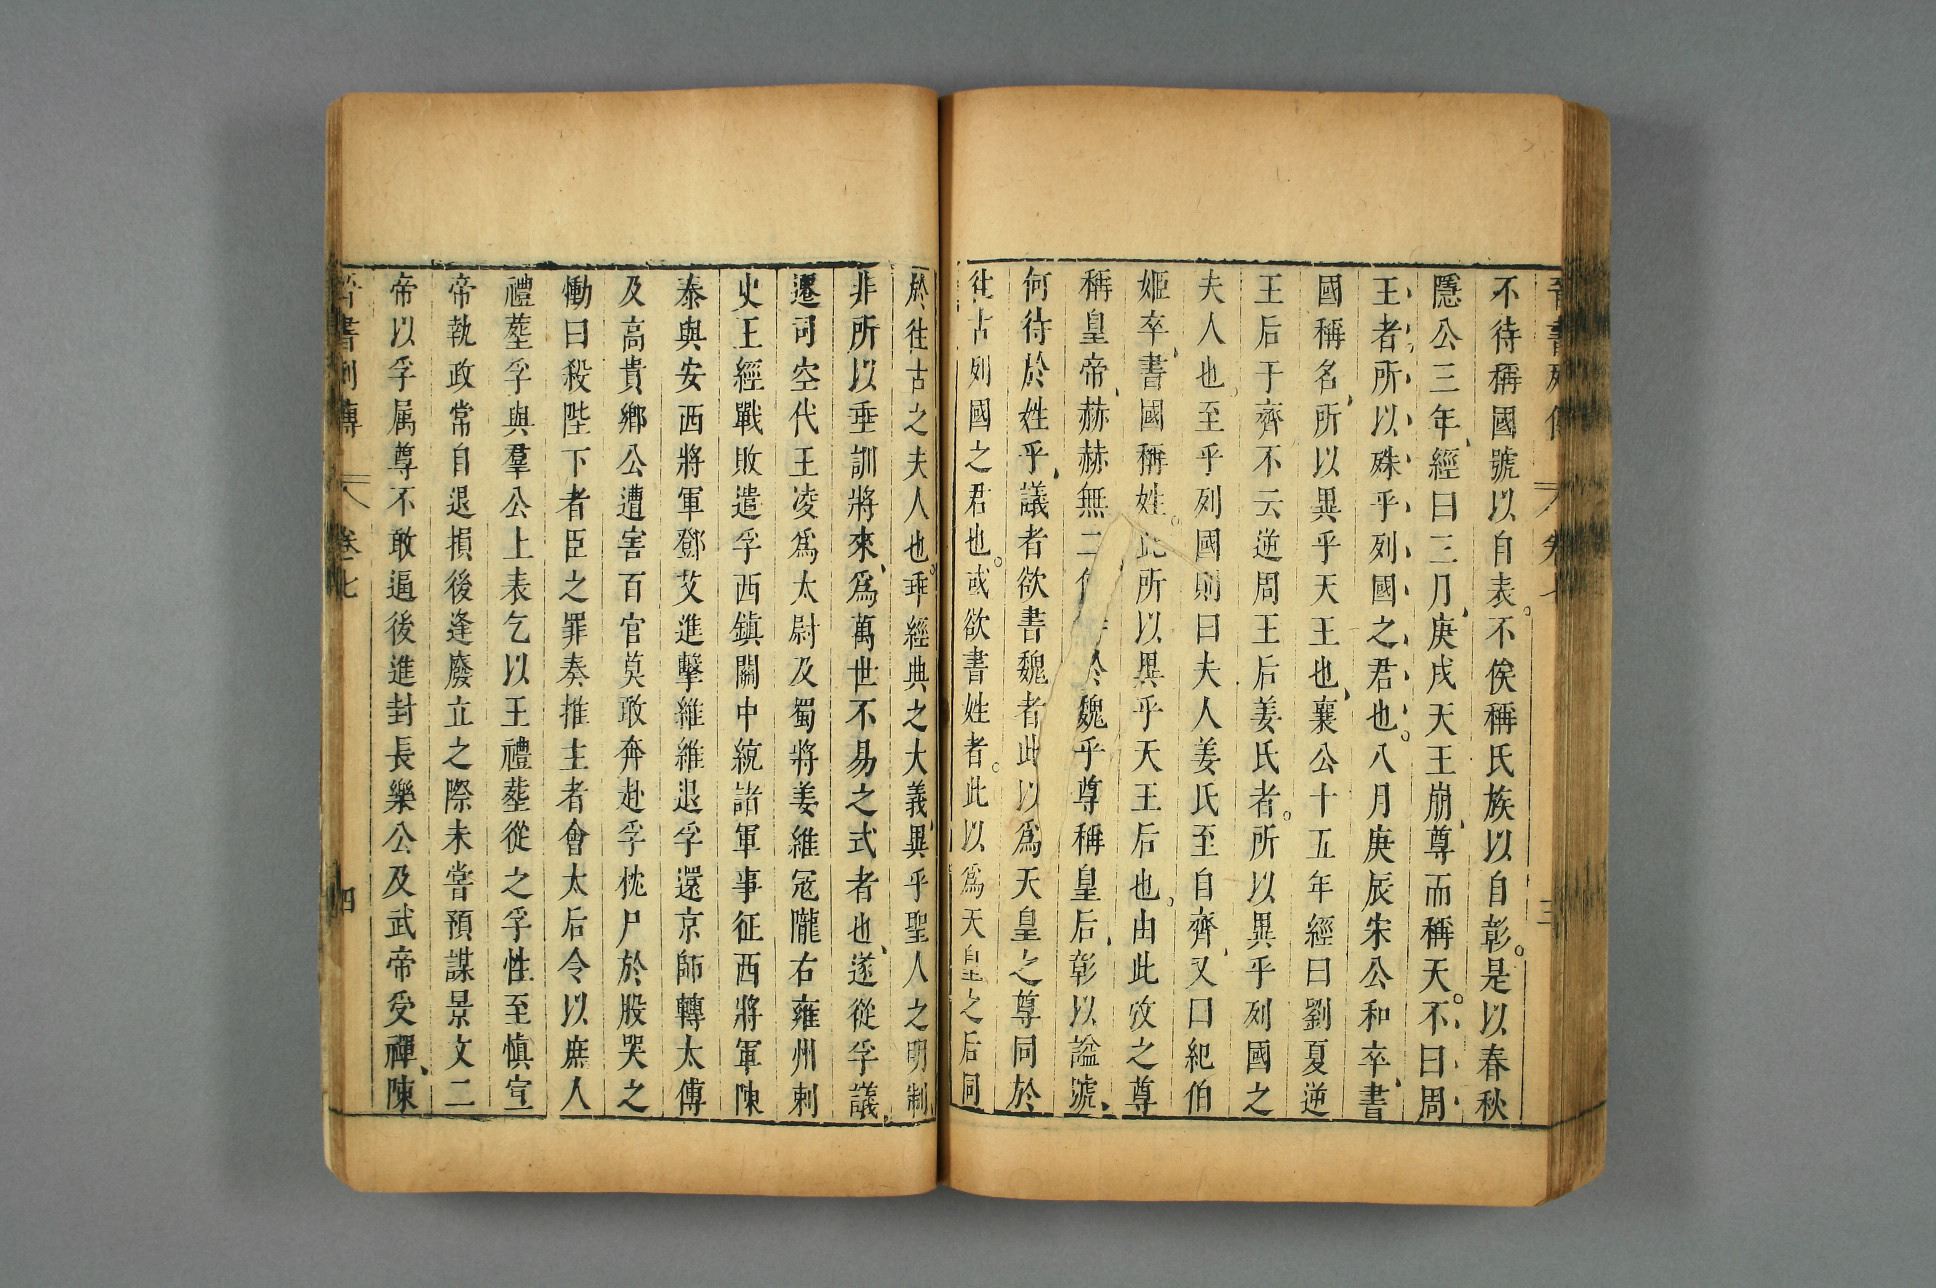 晉書列傳 卷七 三
不待稱國號以自表。不俟稱氏族以自彰。是以春秋
隱公三年、經曰三月、庚戌天王崩、尊而稱天。不曰周
王、者所以殊乎列國之君也。八月庚辰宋公和卒、書
國稱名、所以異乎天王也、襄公十五年經曰劉夏逆
王后于齊不云逆周王后姜氏者。所以異乎列國之
夫人也。至乎列國則曰夫人姜氏至自齊、又曰紀伯
姬卒、書國稱姓。此所以異乎天王后也。由此攷之尊
稱皇帝、赫赫無二 於魏乎尊稱皇后、彰以謚號、
何待於姓乎、議者欲書魏者此以爲天皇之尊同於
往古列國之君也。或欲書姓者。此以爲天皇之后同
於往古之夫人也。乖經典之大義、異乎聖人之明制、
非所以垂訓將來、爲萬世不易之式者也、遂從孚議。
遷司空代王凌爲太尉及蜀將姜維冦隴右雍州刺
史王經戰敗遣孚西鎮關中統諸軍事征西將軍陳
泰與安西將軍鄧艾進擊維維退孚還京師轉太傅
及高貴鄉公遭害百官莫敢奔赴孚枕尸於股哭之
慟曰殺陛下者臣之罪奏推主者會太后令以庶人
禮塟孚與羣公上表乞以王禮塟從之孚性至愼宣
帝執政常自退損後逢廢立之際未嘗預謀景文二
帝以孚属尊不敢逼後進封長樂公及武帝受禪、陳
晉書列傳 卷七 四